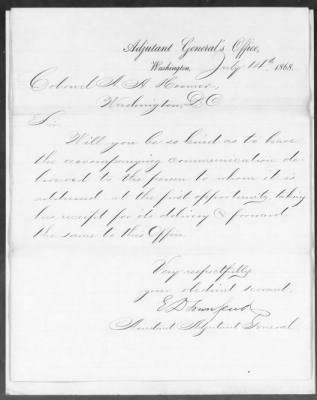 Adjutant General's Office,
Washington, July 14th, 1868.
Colonel
Washington, D.C.
Sir:
Will you be so kind as to have
the accompanying communication de-
livered to the person to whom it is
addressed at the first opportunity, taking
his receipt for its delivery & forward
the same to this Office.
Very respectfully
your obedient servant,
E D Townsend
Assistant Adjutant General